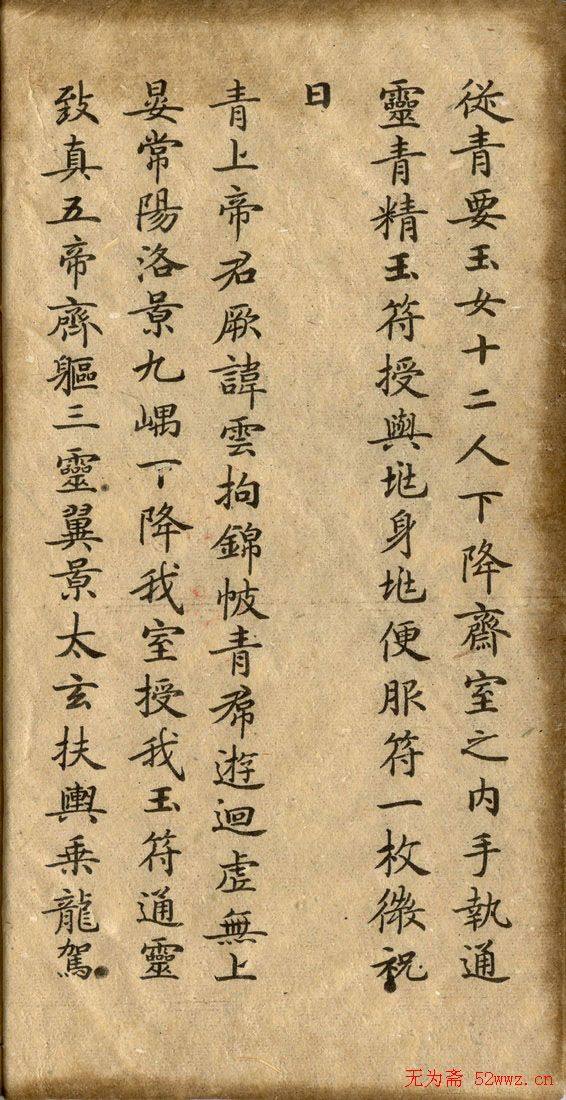 從青要玉女十二人下降齋室之内手執通
靈青精玉符授與兆身兆便服符一枚微祝
曰
青上帝君厥諱雲拘錦帔青帬遊迴虛無上
晏常陽洛景九嵎下降我室授我玉符通靈
致真五帝齊軀三靈翼景太玄扶輿乗龍駕
无为斋 52wwz.cn